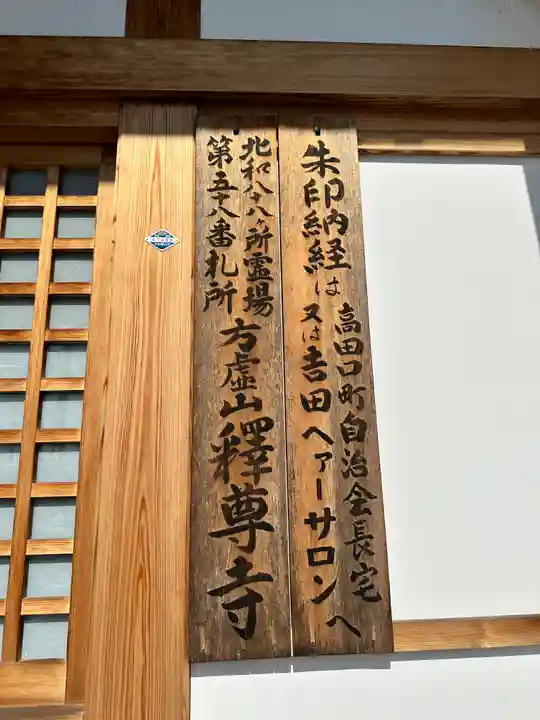 朱印納経は
高田口町自治会長宅
又は吉田ヘァーサロンへ
北和八十八ヶ所霊場
第五十八番札所
方虚山釋尊寺